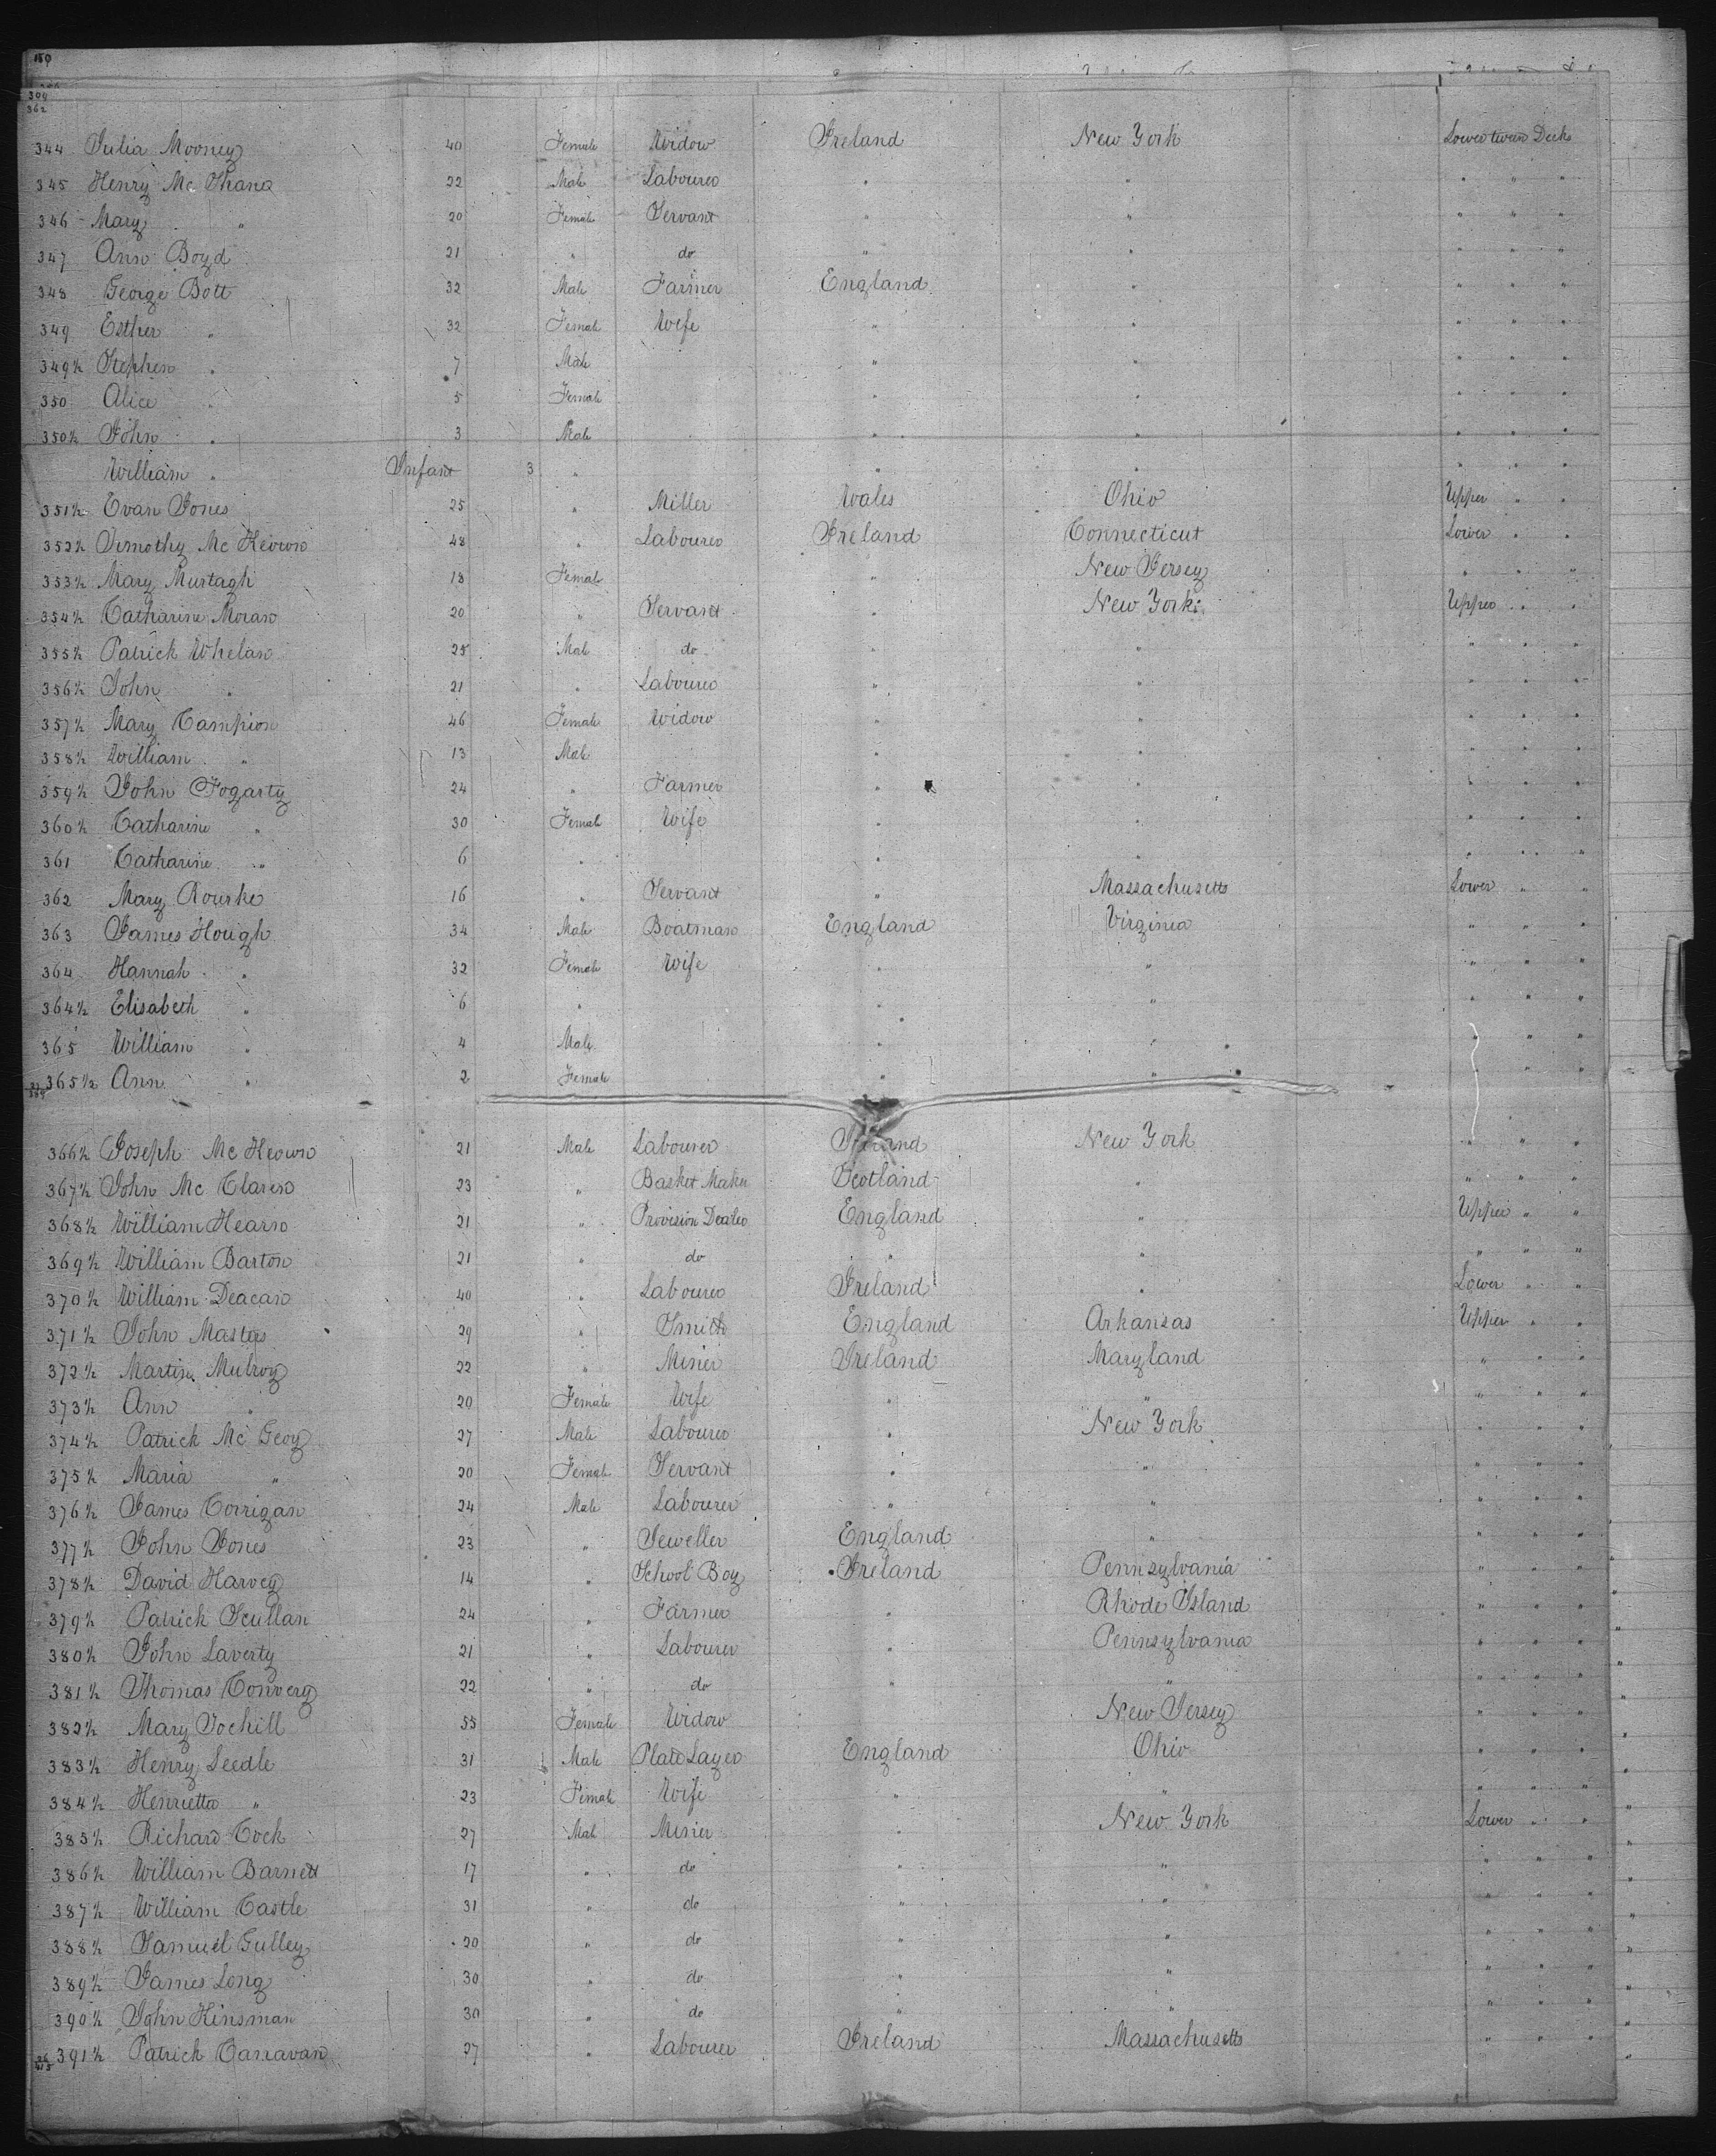 150
309
362
344 Julia Mooney 40 Female Widow Ireland New York Lower tween Decks
345 Henry Mc Shana 22 Male Labourer " " " " "
346 Mary " 20 Female Servant " " " " "
347 Ann Boyd 21 " do " " " " "
348 George Bott 32 Male Farmer England " " " "
349 Esther " 32 Female Wife " " " " "
349½ Stephen " 7 Male " " " " "
350 Alice " 5 Female " " " " "
350½ John " 3 Male " " " " "
William " Infant 3 " " " " " "
351½ Evan Jones 25 " Miller Wales Ohio Upper " "
352½ Timothy Mc Keown 48 " Labourer Ireland Connecticut Lower " "
353½ Mary Murtagh 18 Female " New Jersey " " "
354½ Catharine Moran 20 " Servant " New York Upper " "
355½ Patrick Whelan 25 Male do " " " " "
356½ John " 21 " Labourer " " " " "
357½ Mary Campion 46 Female Widow " " " " "
358½ William " 13 Male " " " " "
359½ John Fogarty 24 " Farmer " " " " "
360½ Catharine " 30 Female Wife " " " " "
361 Catharine " 6 " " " " " "
362 Mary Rourke 16 " Servant " Massachusetts Lower " "
363 James Hough 34 Male Boatman England Virginia " " "
364 Hannah " 32 Female Wife " " " " "
364½ Elisabeth " 6 " " " " " "
365 William " 4 Male " " " " "
365½ Ann " 2 Female " " " " "
366½ Joseph Mc Keown 21 Male Labourer Ireland New York " " "
367½ John Mc Claren 23 " Basket Maker Scotland " " " "
368½ William Hearn 21 " Provision Dealer England " Upper " "
369½ William Barton 21 " do " " " " "
370½ William Deacan 40 " Labourer Ireland " Lower " "
371½ John Mastas 29 " Smith England Arkansas Upper " "
372½ Martin Mulroy 22 " Miner Ireland Maryland " " "
373½ Ann " 20 Female Wife " " " " "
374½ Patrick Mc Geoy 27 Male Labourer " New York " " "
375½ Maria " 20 Female Servant " " " " "
376½ James Corrigan 24 Male Labourer " " " " "
377½ John Jones 23 " Jeweller England " " " "
378½ David Harvey 14 " School Boy Ireland Pennsylvania " " "
379½ Patrick Scullan 24 " Farmer " Rhode Island " " "
380½ John Laverty 21 " Labourer " Pennsylvania " " "
381½ Thomas Convery 22 " do " " " " "
382½ Mary Tochill 55 Female Widow New Jersey " " "
383½ Henry Leedle 31 Male Plate Layer England Ohio " " "
384½ Henrietta " 23 Female Wife " " " " "
385½ Richard Cock 27 Male Miner " New York Lower " "
386½ William Barnett 17 " do " " " " "
387½ William Castle 31 " do " " " " "
388½ Samuel Gulley 20 " do " " " " "
389½ James Long 30 " do " " " " "
390½ John Hinsman 30 " do " " " " "
391½ Patrick Carravan 27 " Labourer Ireland Massachusetts " " "